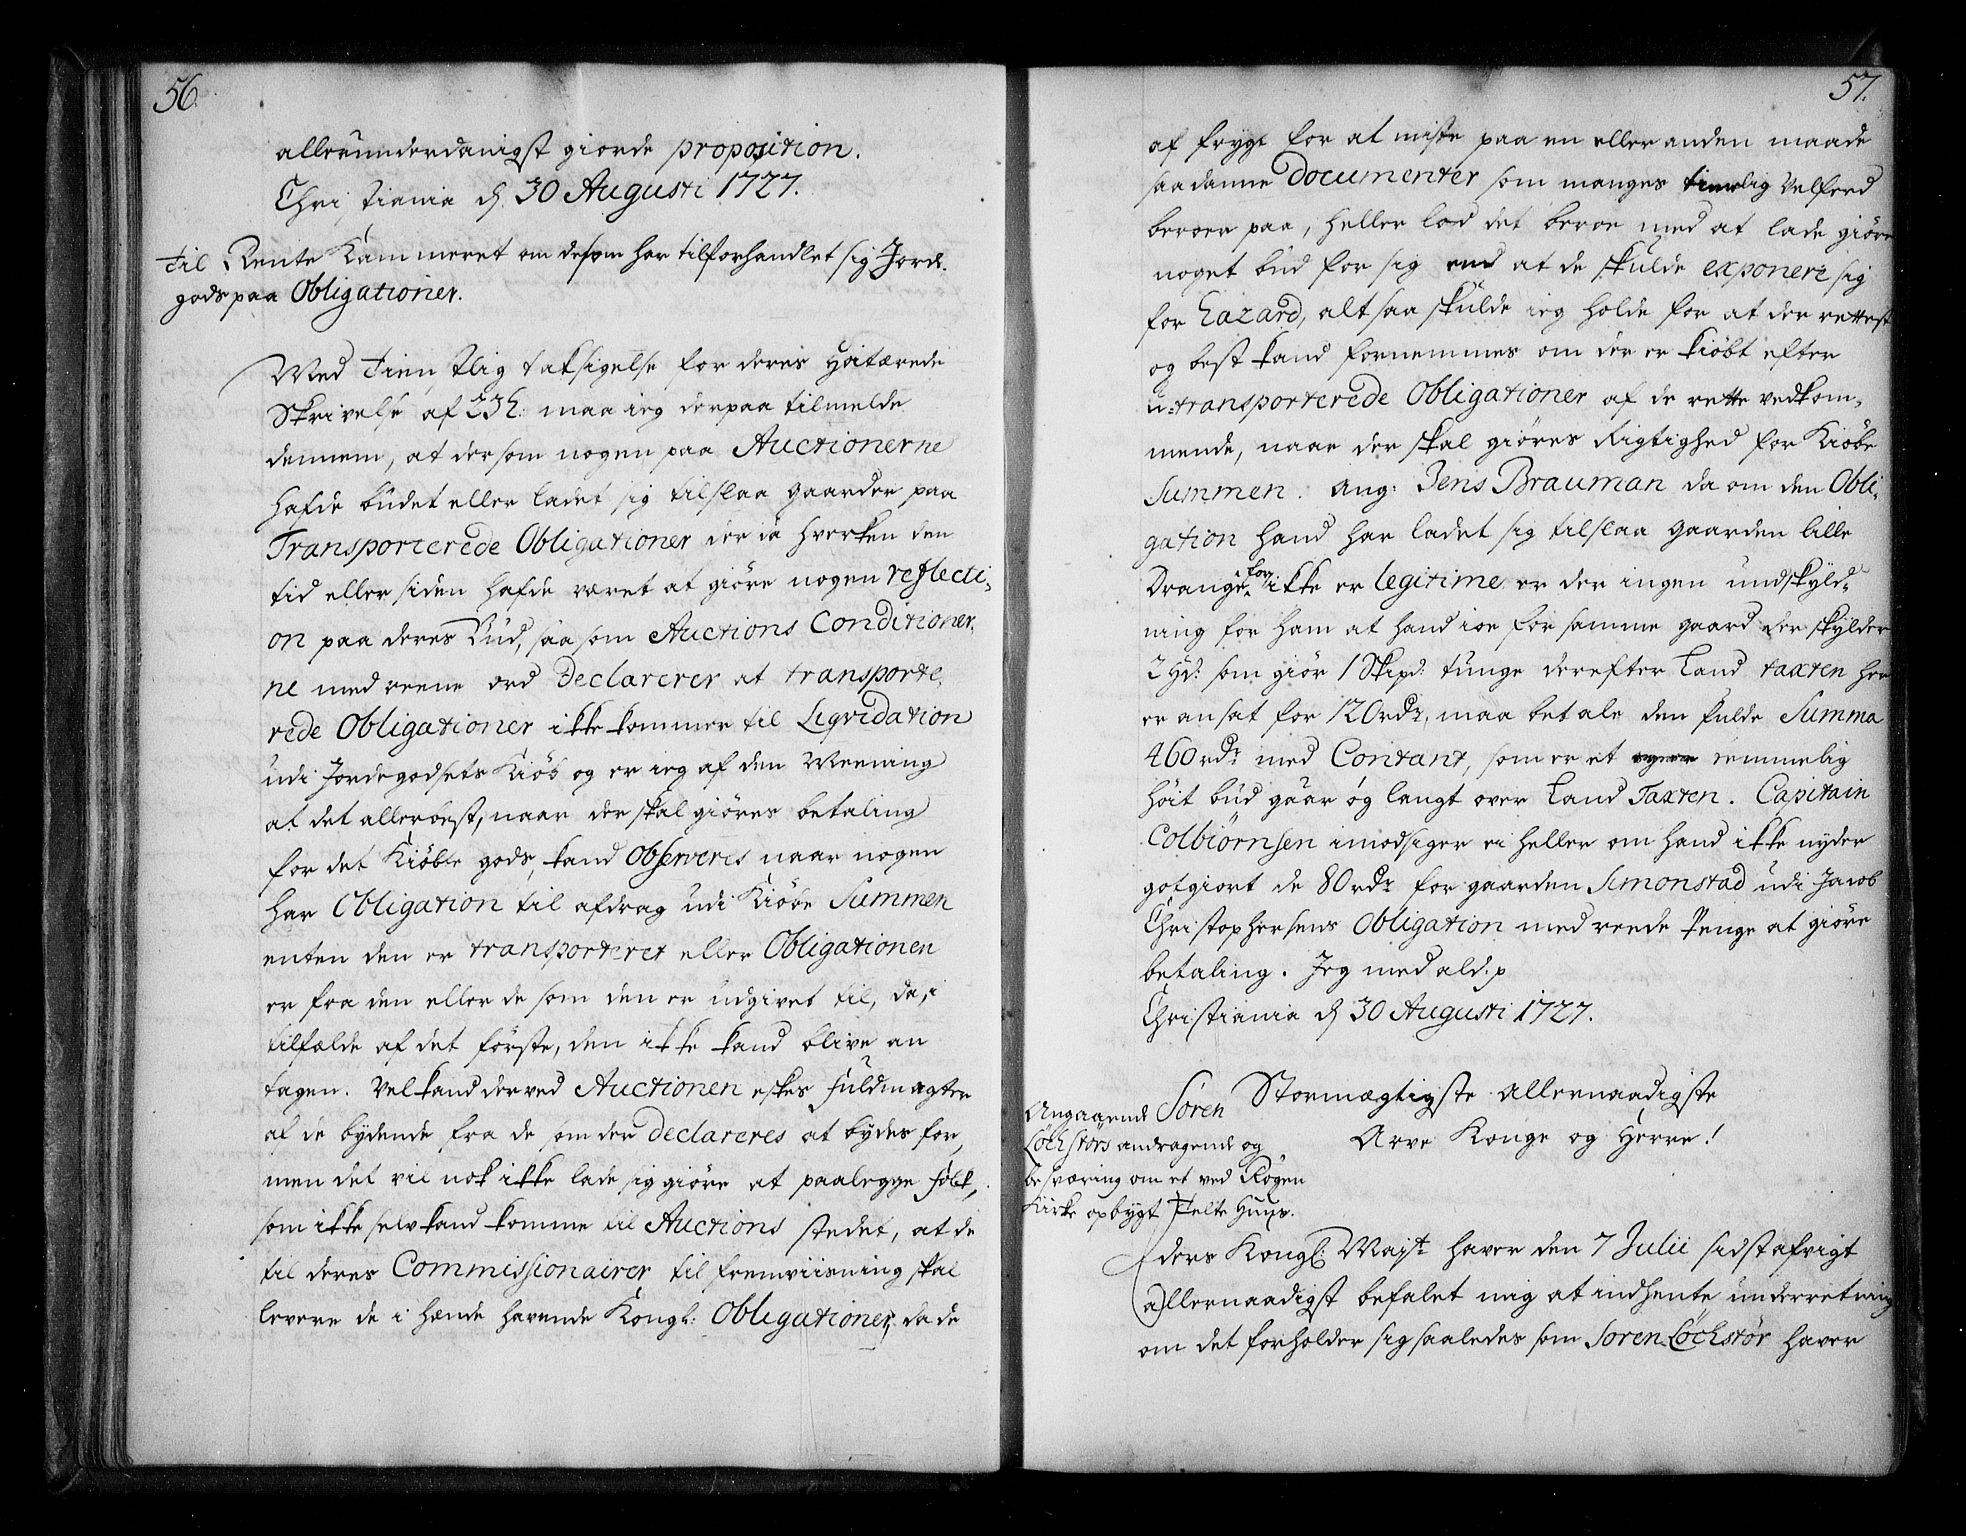 56.
allerunderdanigst giorde proposition.
Christiania d. 30 Augusti 1727.
til Rente Kammeret om de som har tilforhandlet sig Jorde
gods paa Obligationer.
Med Tienstlig taksigelse for deris Høitærede
Skrivelse af maa ieg derpaa tilmelde
dennem, at dersom nogen paa Auctionerne
hafde budet eller ladet sig tilslaa gaarder paa
Transporterede Obligationer der ia hverken den
tid eller siden hafde været at giøre nogen reflecti-
on paa deres Bud, saasom Auctions Conditioner-
ne med reene ord Declarerer at transporte-
rede Obligationer ikke kommer til Liqvidation
udi Jordegodsets Kiøb og er ieg af den Meening
at det allerbest, naar der skal giøres betaling
for det Kiøbte gods, kand Observeris naar nogen
har Obligation til afdrag udi Kiøbe Summen
enten den er transporteret eller Obligationen
er fra den eller de som den er udgivet til, da, i
tilfælde af det første, den ikke kand blive an
tagen. Vel kand derved Auctionen eskes fuldmagter
af de bydende fra de som der Declareres at bydes for,
men det vil nok ikke lade sig giøre at paalegge folk,
som ikke selv kand komme til Auctions stedet, at de
til deres Commissionairer til fremviisning skal
levere de i hænde havende Kongl: Obligationer, da de
57.
af frygt for at miste paa en eller anden maade
saadanne Documenter som manges timelig Velferd
beroer paa, heller lod det beroe med at lade giøre
noget bud for sig end at de skulde exponere sig
for Hazard, alt saa skulde ieg holde for at der rettest
og best kand fornemmes om der er kiøbt efter
u-transporterede Obligationer af de rette vedkom-
mende, naar der skal giøres Rigtighed for Kiøbe
Summen. Ang: Jens Brauman da om den Obli-
gation hand har ladet sig tilslaa gaarden lille
Drange for ikke er legitime er der ingen undskyld-
ning for ham at hand ioe for samme gaard der skylder
2 Hd: som giør 1 Skipd: tunge derefter Land taxten her
er ansat for 120 rdr, maa betale den fulde Summa
460 rdr med Contant, som er et temmelig
høit bud gaar og langt over Land Taxten. Capitain
Colbiørnsen imodsiger ei heller om hand ikke nyder
gotgiort de 80 rdr for gaarden Simonstad udi Jacob
Christophersens Obligation med reede Penge at giøre
betaling. Jeg med ald. p
Christiania d. 30 Augusti 1727.
Stormægtigste Allernaadigste
Arve Konge og Herre!
Angaaende Søren
Løchstørs andragende og
besværing om et ved Røgen
Kirke opbygt Telte Huus.
ders Kongl: Mayst haver den 7 Julii sidst afvigt
allernaadigst befalet mig at indhente underretning
om det forholder sig saaledes som Soren Løchstør haver